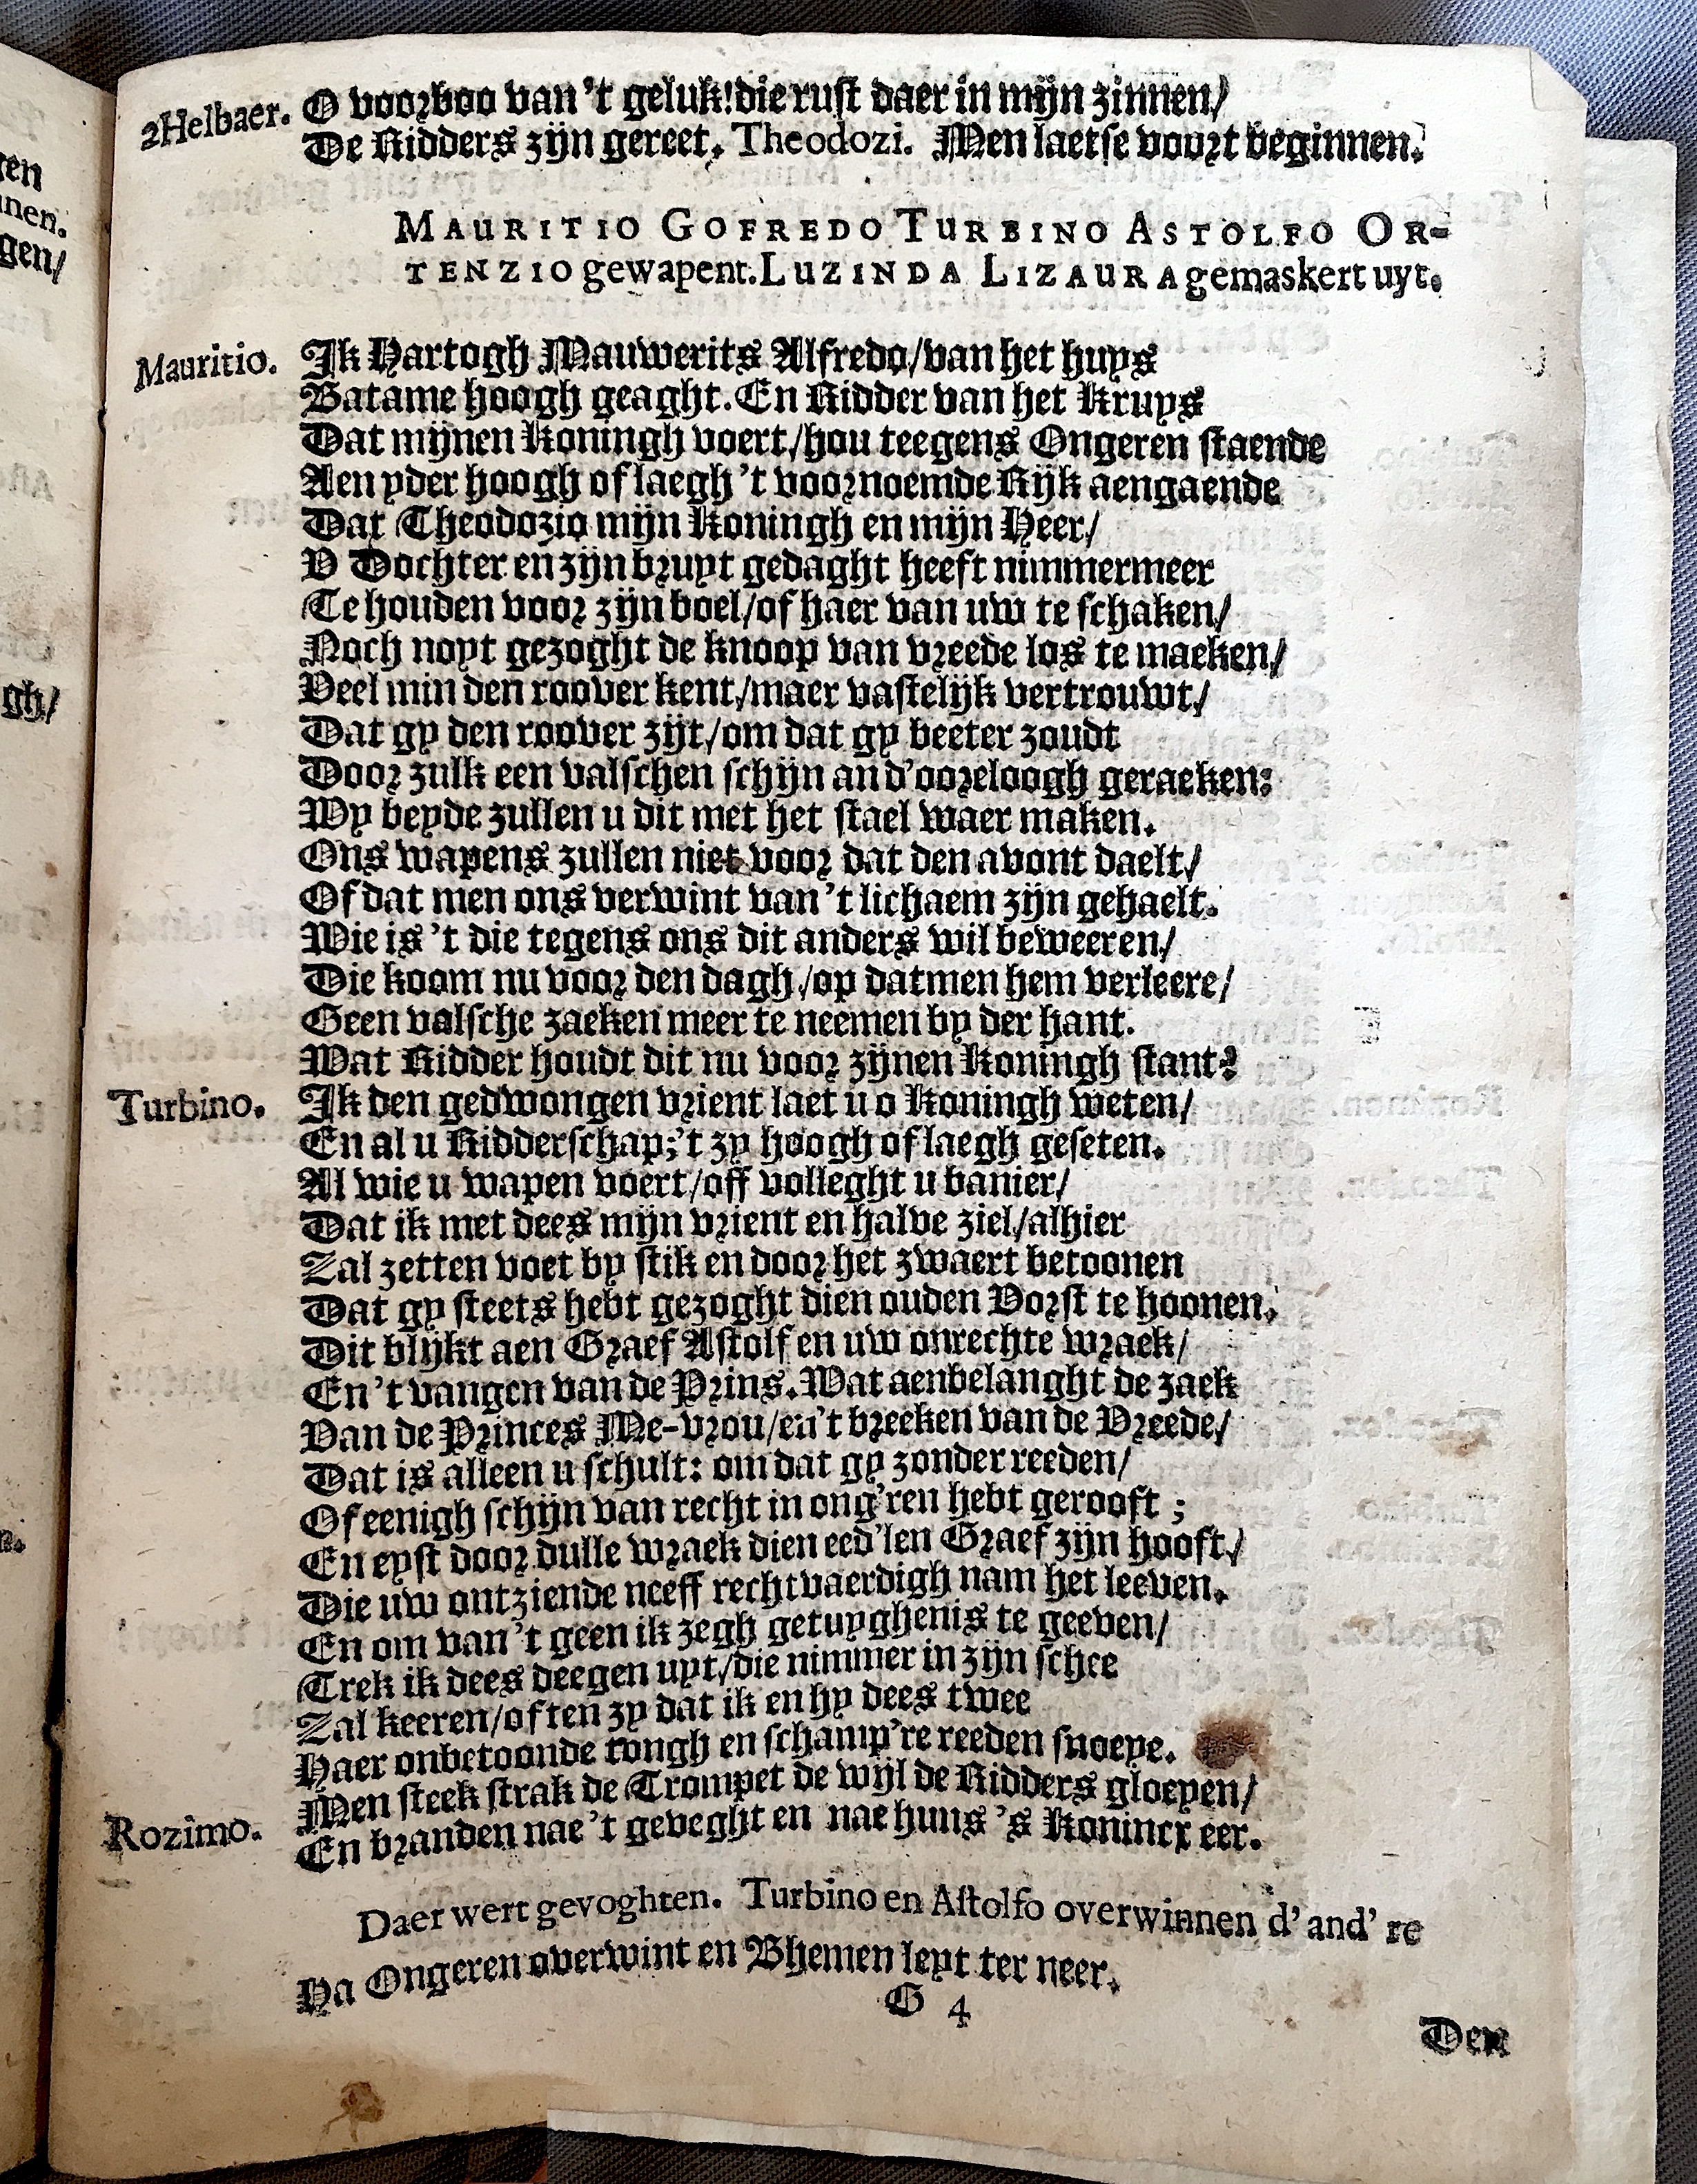 2Helbaer. O voorboo van 't geluk! die rust daer in mijn zinnen/
De Ridders zijn gereet. Theodozi. Men laetse voort beginnen.
MAURITIO GOFREDO TURBINO ASTOLFO OR-
TENZIO gewapent. LUZINDA LIZAURA gemaskert uyt.
Mauritio. Ik Hartogh Mauwerits Alfredo/van het huys
Batame hoogh geaght. En Ridder van het Kruys
Dat mijnen Koningh voert/hou teegens Ongeren staende
Aen yder hoogh of laegh 't voornoemde Rijk aengaende
Dat Theodozio mijn Koningh en mijn Heer/
V Dochter en zijn bruyt gedaght heeft nimmermeer
Te houden voor zijn boel/of haer van uw te schaken/
Noch noyt gezoght de knoop van vreede los te maeken/
Veel min den roover kent/maer vastelijk vertrouwt/
Dat gy den roover zijt/om dat gy beeter zoudt
Door zulk een valschen schijn and'ooreloogh geraeken:
Wy beyde zullen u dit met het stael waer maken.
Ons wapens zullen niet voor dat den avont daelt/
Of dat men ons verwint van 't lichaem zijn gehaelt.
Wie is 't die tegens ons dit anders wil beweeren/
Die koom nu voor den dagh/op datmen hem verleere/
Geen valsche zaeken meer te neemen by der hant.
Wat Ridder houdt dit nu voor zijnen Koningh stant?
Turbino. Ik den gedwongen vrient laet u o Koningh weten/
En al u Ridderschap;'t zy hoogh of laegh geseten.
Al wie u wapen voert/off volleght u banier/
Dat ik met dees mijn vrient en halve ziel/alhier
Zal zetten voet by stik en door het zwaert betoonen
Dat gy steets hebt gezoght dien ouden Vorst te hoonen.
Dit blijkt aen Graef Astolf en uw onrechte wraek/
En 't vangen van de Prins. Wat aenbelanght de zaek
Van de Princes Me-vrou/en 't breeken van de Vreede/
Dat is alleen u schult: om dat gy zonder reeden/
Of eenigh schijn van recht in ong'ren hebt gerooft ;
En eyst door dulle wraek dien eed'len Graef zijn hooft/
Die uw ontziende neeff rechtvaerdigh nam het leeven.
En om van 't geen ik zegh getuyghenis te geeven/
Trek ik dees deegen uyt/die nimmer in zijn schee
Zal keeren/of ten zy dat ik en hy dees twee
Haer onbetoonde tongh en schamp're reeden snoeye.
Rozimo. Men steek strak de Trompet de wijl de Ridders gloeyen/
En branden nae 't geveght en nae huns 's Konincx eer.
Daer wert gevoghten. Turbino en Astolfo overwinnen d'and're
Ha Ongeren overwint en Bhemen leyt ter neer.
G 4
Den